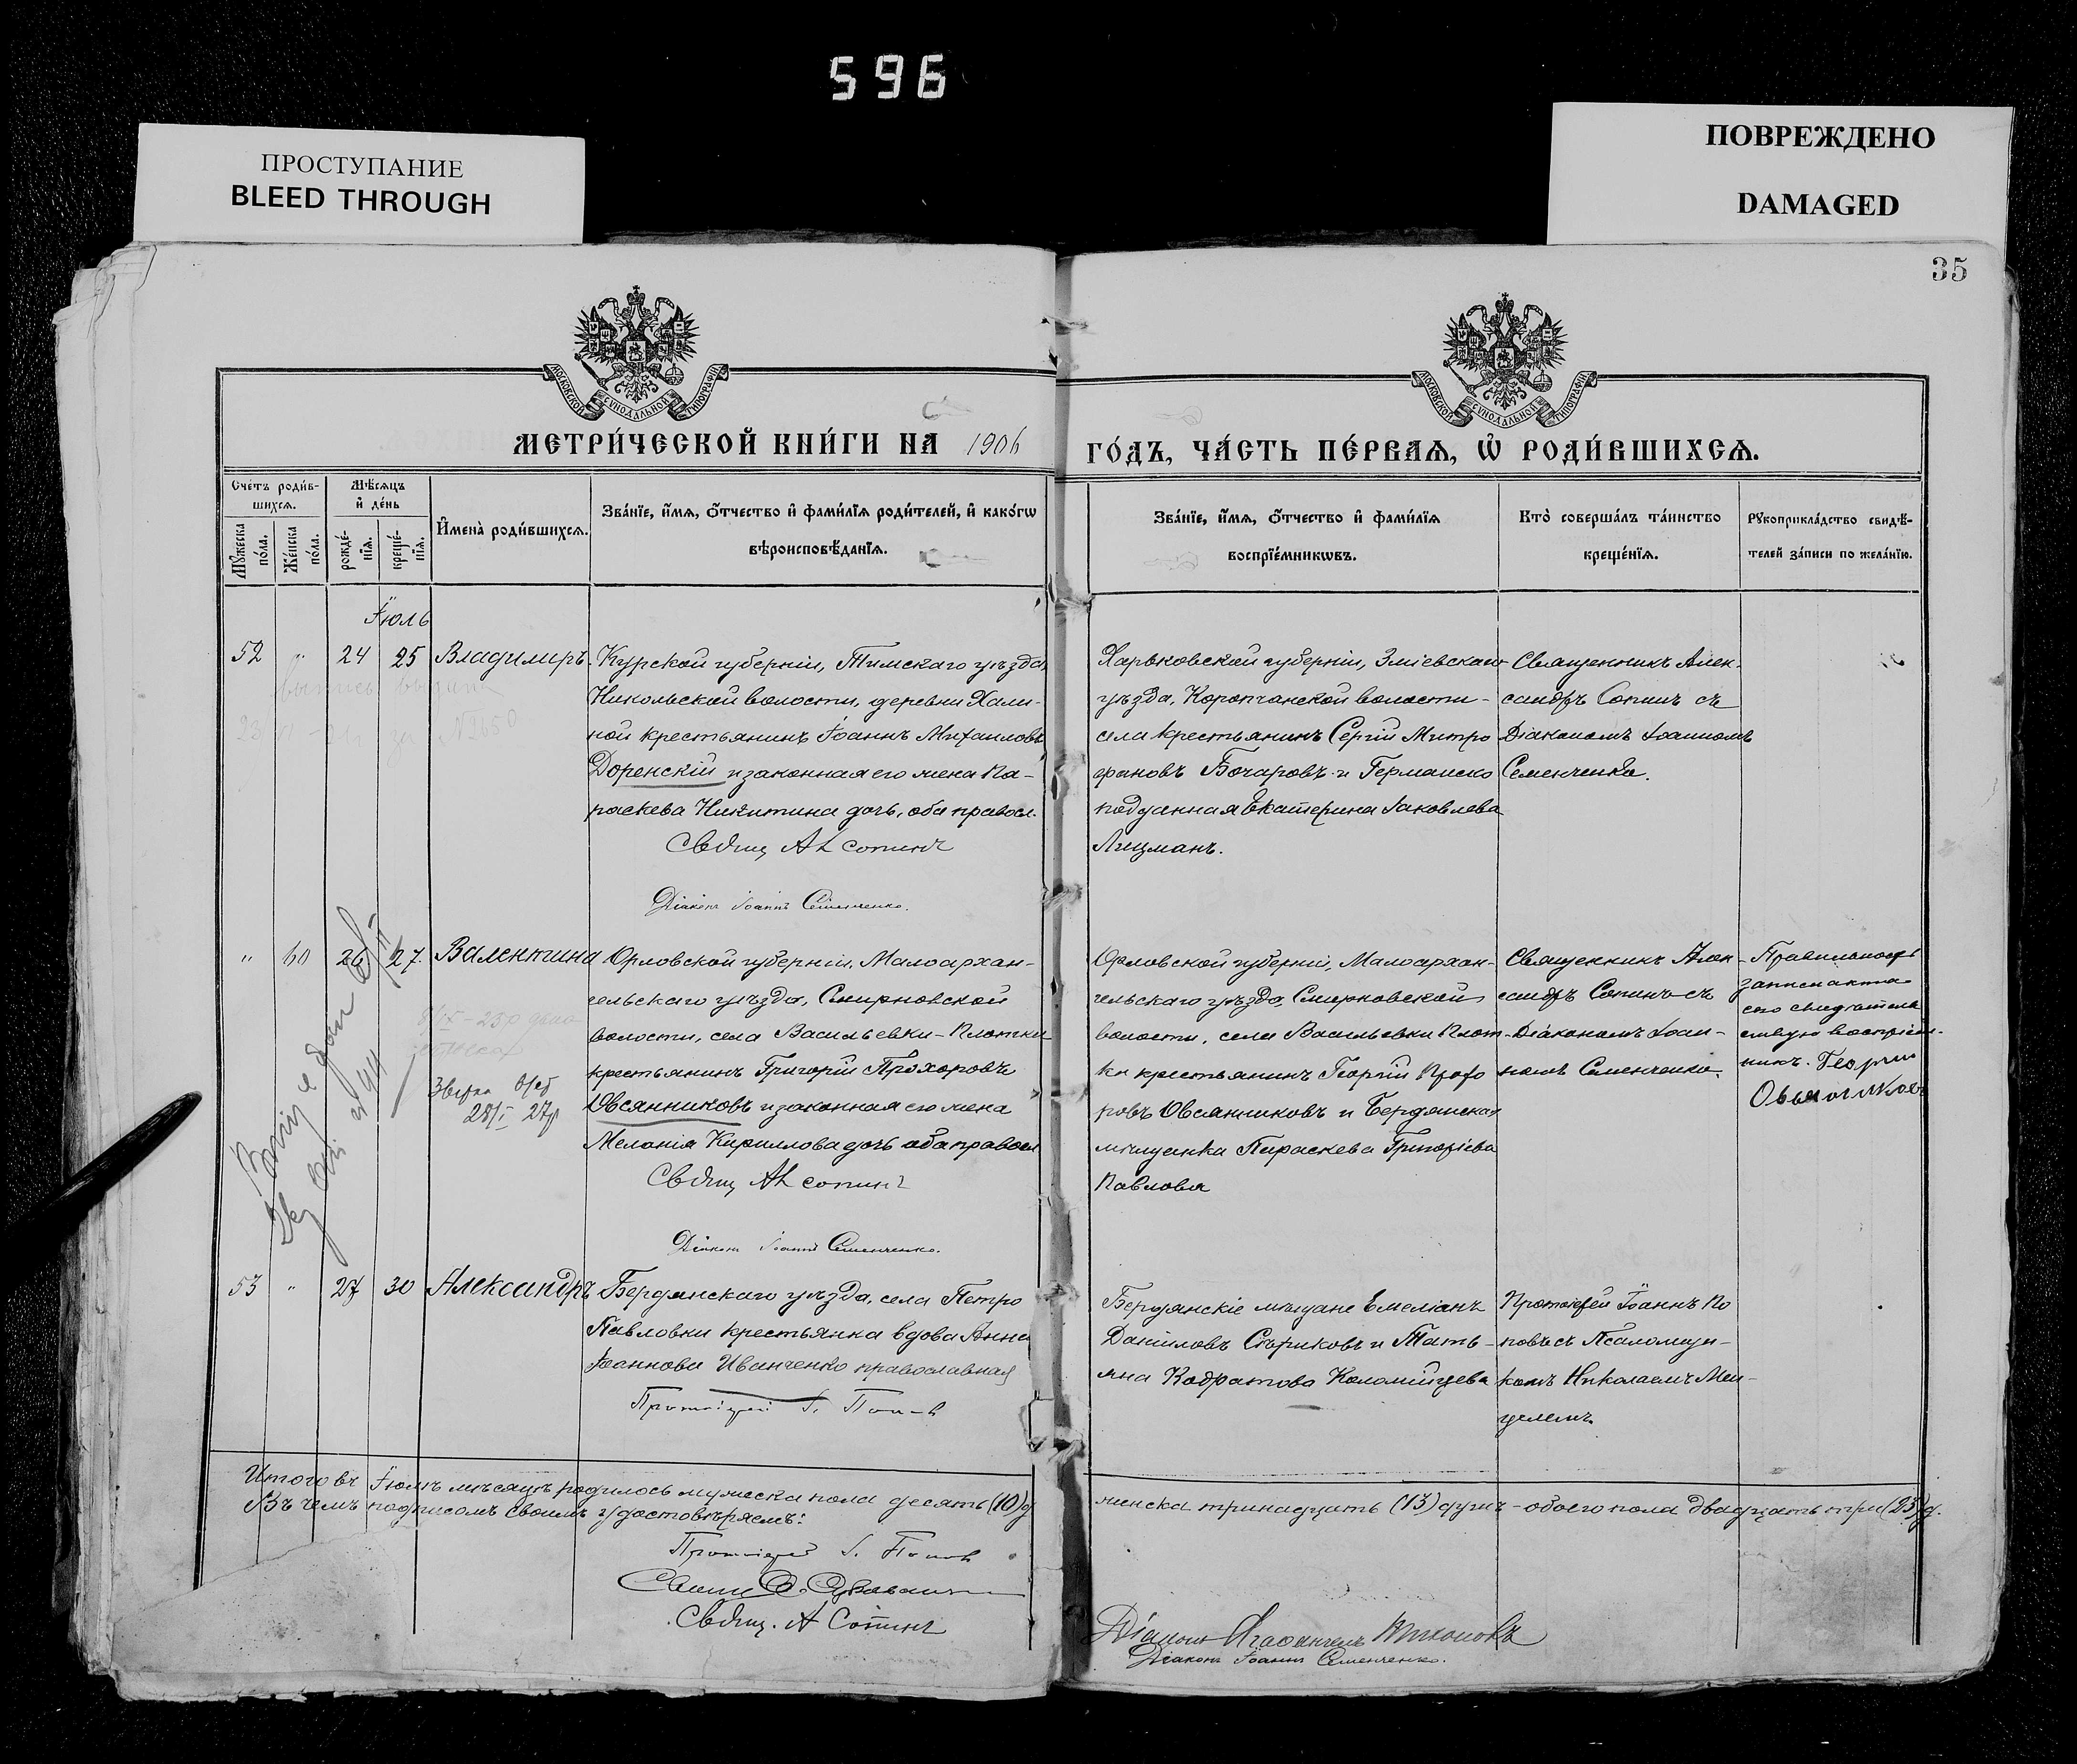 596
ПРОСТУПАНИЕ
BLEED THROUGH
ПОВРЕЖДЕНО
DAMAGED
35
МОСКОВСКОЙ СѴНОДАЛЬНОЙ ТИПОГРАФІИ
МОСКОВСКОЙ СѴНОДАЛЬНОЙ ТИПОГРАФІИ
МЕТРИ́ЧЕСКОЙ КНИ́ГИ НА 1906
ГО́ДЪ, ЧА́СТЬ ПЕ́РВАѦ, Ѡ҆ РОДИ́ВШИХСѦ.
Сче́тъ роди́в-
шихсѧ.
Мꙋ́жеска по́ла.
Же́нска по́ла.
Мѣ́сѧцъ
и҆ де́нь
рожде́-
нїѧ.
креще́-
нїѧ.
И҆мена̀ роди́вшихсѧ.
Зва́нїе, и҆́мѧ, ѻ҆́тчество и҆ фами́лїѧ роди́телей, и҆ како́гѡ
вѣроисповѣ́данїѧ.
Зва́нїе, и҆́мѧ, ѻ҆́тчество и҆ фами́лїѧ
воспрїе́мникѡвъ.
Кто̀ соверша́лъ та́инство
креще́нїѧ.
Рꙋкоприкла́дство свидѣ́-
телей за́писи по жела́нїю.
Іюль
52 " 24 25 Владимиръ.
Курской губерніи, Тимскаго уѣзда
Никольской волости, деревни Хали-
ной крестьянинъ Іоаннъ Михаиловъ
Доренскій и законная его жена Па-
раскева Никитина дочь, оба правосл.
Свящ Ал Сопинъ
Діаконъ Іоаннъ Семенченко.
Харьковской губерніи, Зміевскаго
уѣзда, Коропчанской волости -
села крестьянинъ Сергій Митро
фановъ Бочаровъ и Германско
подданная Екатерина Іаковлева
Священникъ Алек-
сандръ Сопинъ съ
Діакономъ Іоанномъ
Семенченко.
" 60 26 27 Валентина
Орловской губерніи, Малоархан-
гельскаго уѣзда, Смирновской
волости, села Васильевки-Плотки
крестьянинъ Григорій Прохоровъ
Овсянниковъ и законная его жена
Меланія Кириллова дочь оба правосл
Свящ Ал Сопинъ
Діаконъ Іоаннъ Семенченко.
Орловской губерніи, Малоархан-
гельскаго уѣзда, Смирновской
волости, села Васильевки Плот-
ки крестьянинъ Георгій Прохо
ровъ Овсянниковъ и Бердянская
мѣщанка Параскева Григоріева
Павлова
Священникъ Алек-
сандръ Сопинъ съ
Діакономъ Іоан-
номъ Семенченко.
Правильность
записи акта
сего свидѣтель
ствую воспріем-
никъ. Георгій
Овсянниковъ
Звирка
28/I 27р
53 " 27 30 Александръ
Бердянскаго уѣзда, села Петро
Павловки крестьянка вдова Анна
Іоаннова Иванченко православная
Протоіерей І. Поповъ
Бердянскіе мѣщане Емеліанъ
Даніиловъ Стариковъ и Тать-
яна Кодратова Коломійцева
Протоіерей Іоаннъ По
повъ съ Псаломщи-
комъ Николаемъ Мен-
целемъ
Итого въ Іюлѣ мѣсяцѣ родилось мужеска пола десять (10) д
женска тринадцать (13) душъ - обоего пола двадцать три (23) д.
Въ чемъ подписомъ своимъ удостовѣряемъ:
Протоіерей І. Поповъ
Свящ. А Сопинъ
Діаконъ Агафангелъ Тихоновъ
Діаконъ Іоаннъ Семенченко.